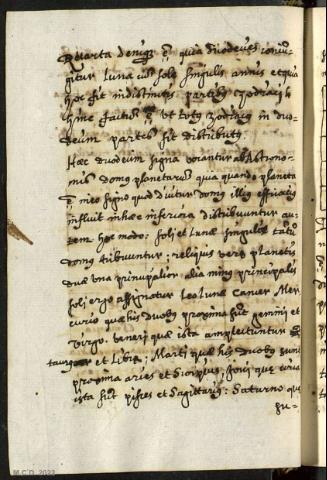 Quarta denique ē quia duodecies coniū-
gitur luna cū sole singulis annis et quia
hoc fit in distinctis partibus zodiaci
hinc factū ē ut totꝰ zodiacꝰ in duo-
decim partes sit distributꝰ.
Hæc duodecim signa vocantur ab Astrono-
mis domꝰ planetarum quia quando planeta
ē in eo signo quod dicitur domꝰ illiꝰ efficaciꝰ
influit in hæc inferiora distribuuntur au-
tem hoc modo: soli et lunæ singulæ tātū
domꝰ tribuuntur: reliquis vero planetis
duæ una principalior alia minꝰ principalis
soli ergo assignatur leo lunæ Cancer Mer
curio quæ his duobꝰ proxima sūt gemini et
virgo. Veneri quæ ista amplectuntur
taurus et Libra; Marti quæ his duobꝰ sunt
proxima aries et Scorpius, Iovi que circa
ista sūt pisces et Sagittariꝰ: Saturno quę
su-
M.C.D. 2022